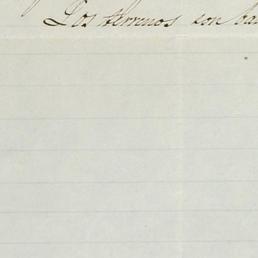 Los terrenos son ba